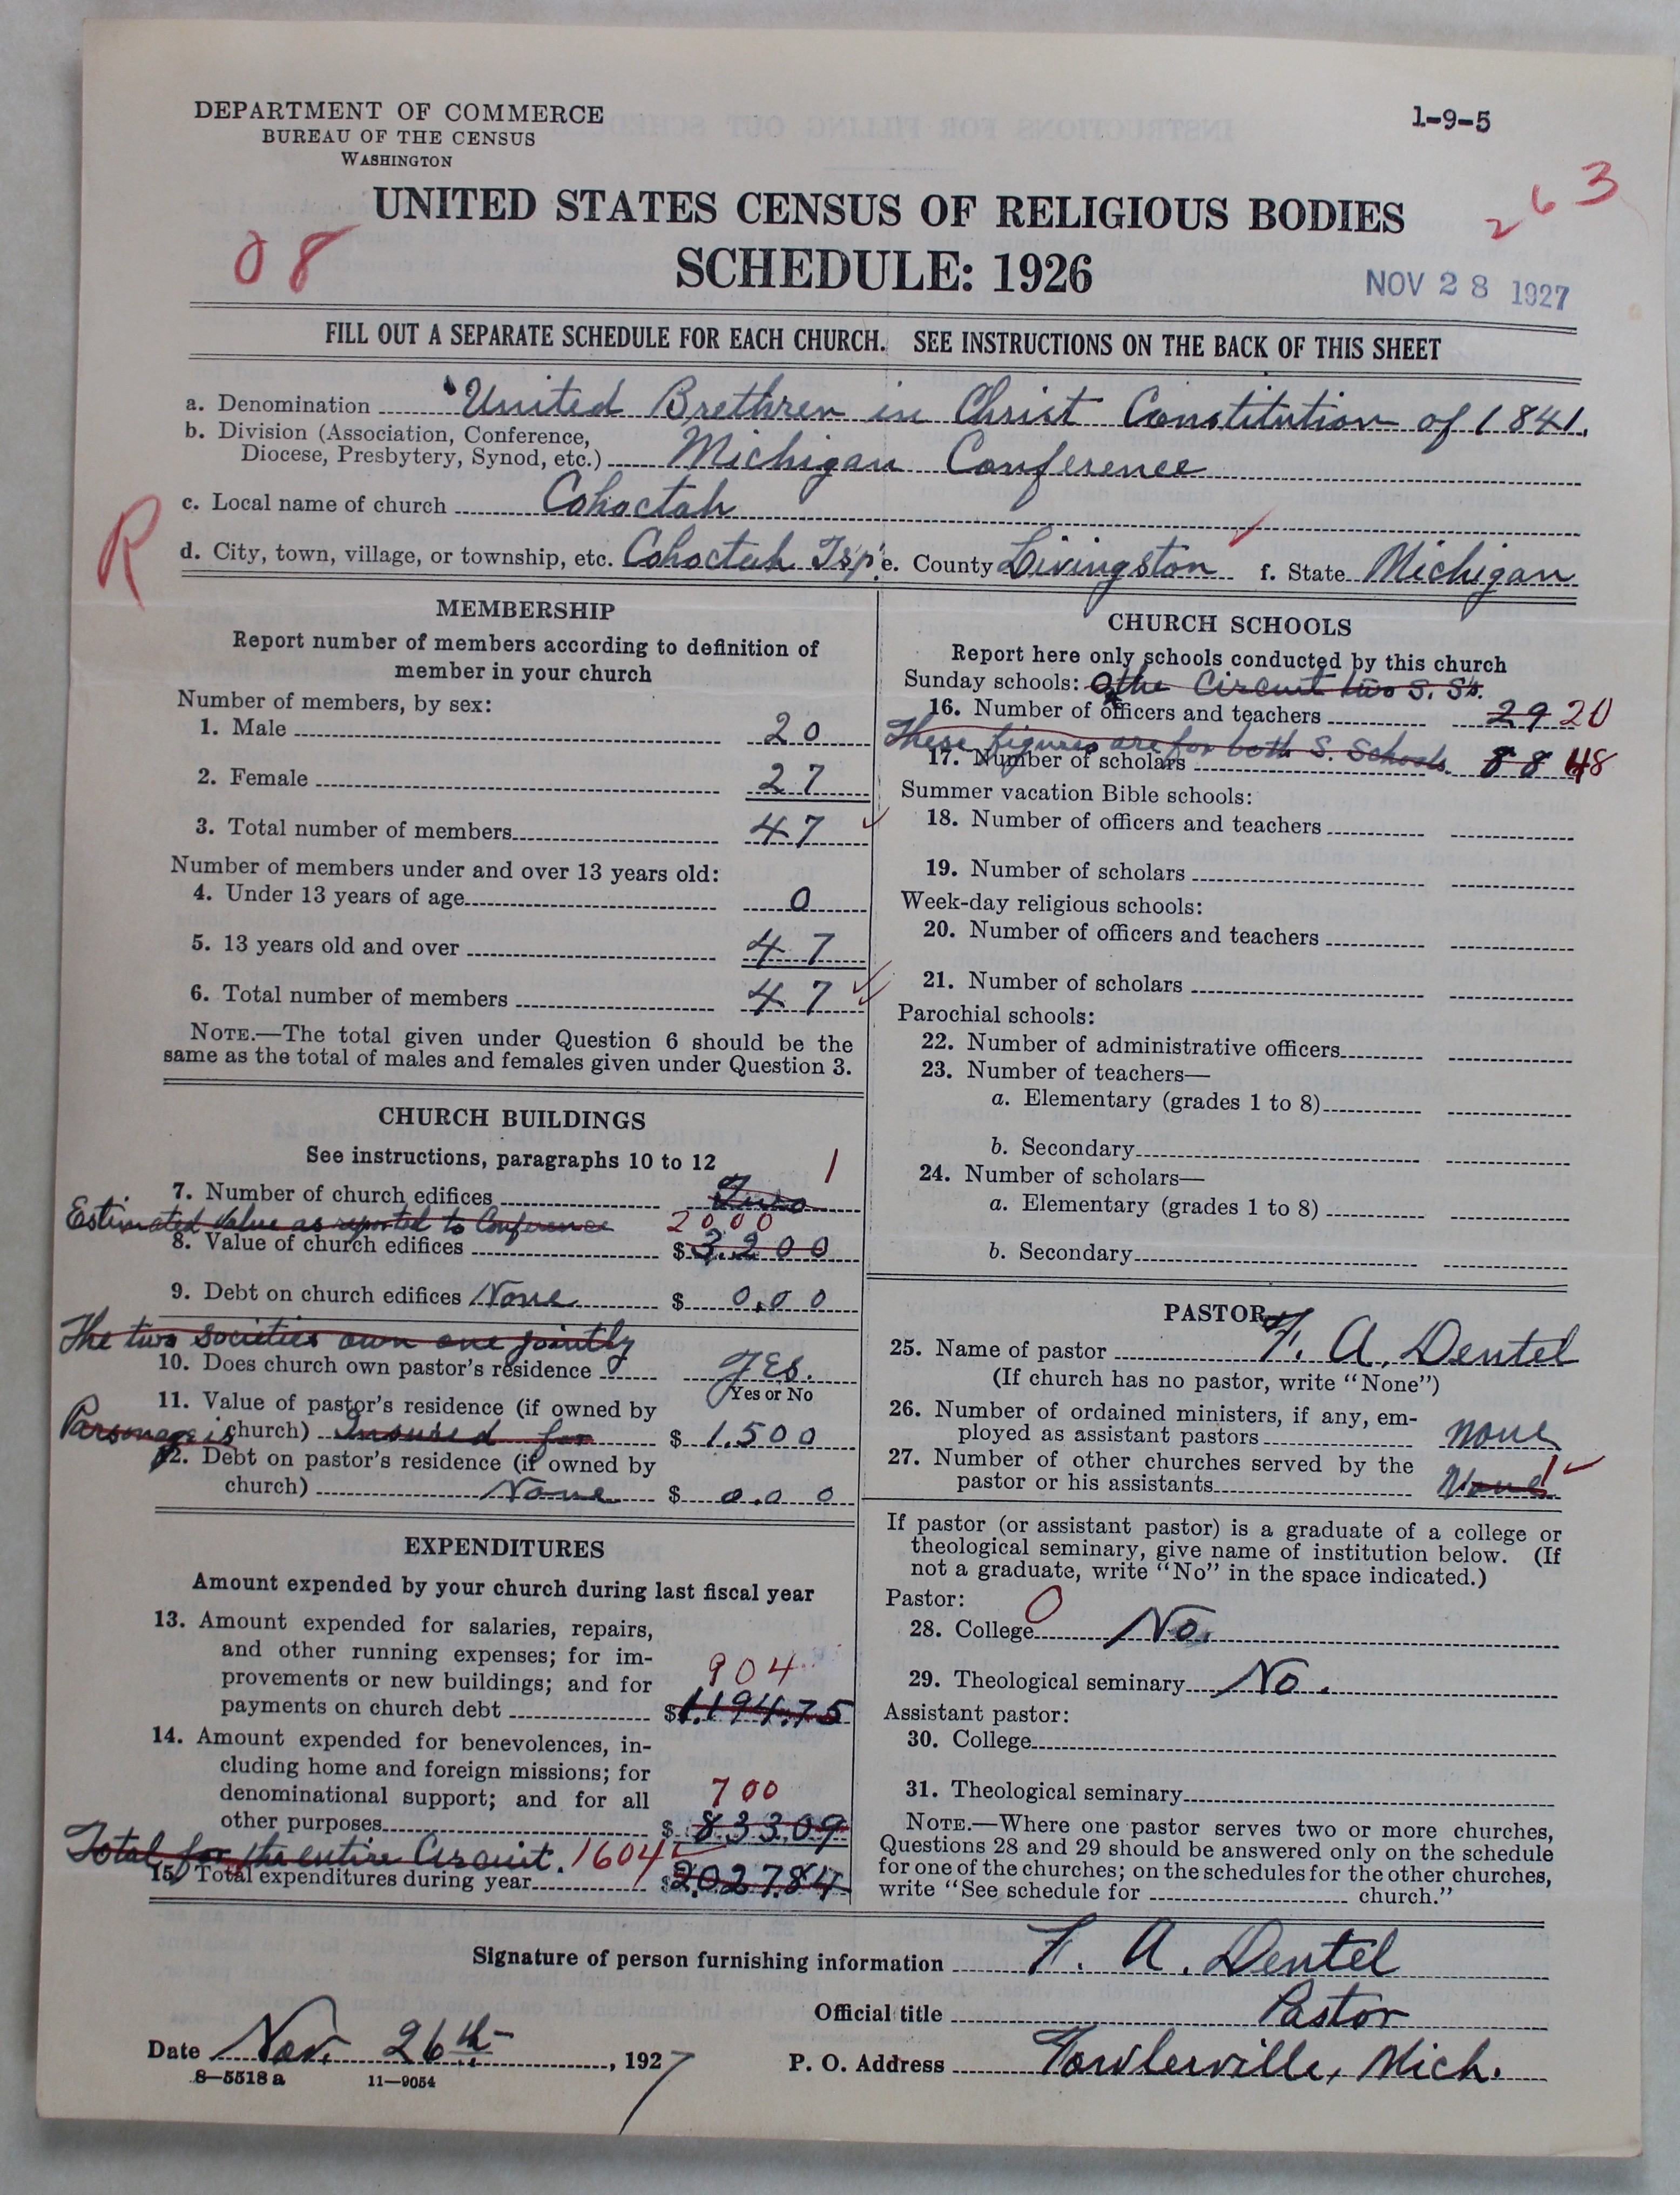 DEPARTMENT OF COMMERCE
BUREAU OF THE CENSUS
WASHINGTON
1-9-5
UNITED STATES CENSUS OF RELIGIOUS BODIES
263
08
SCHEDULE: 1926
NOV 28 1927
FILL OUT A SEPARATE SCHEDULE FOR EACH CHURCH. SEE INSTRUCTIONS ON THE BACK OF THIS SHEET
a. Denomination United Brethren in Christ Constitution of 1841.
b. Division (Association, Conference,
Diocese, Presbytery, Synod, etc.) Michigan Conference
c. Local name of church Cohoctah
R
d. City, town, village, or township, etc. Cohoctah Tsp. e. County Livingston f. State Michigan
MEMBERSHIP
Report number of members according to definition of
member in your church
Number of members, by sex:
1. Male 20
2. Female 27
3. Total number of members 47
Number of members under and over 13 years old:
4. Under 13 years of age 0
5. 13 years old and over 47
6. Total number of members 47
NOTE.—The total given under Question 6 should be the
same as the total of males and females given under Question 3.
CHURCH BUILDINGS
See instructions, paragraphs 10 to 12
1
7. Number of church edifices Two
Estimated Value as reported to Conference 2000
8. Value of church edifices $ 3,200
9. Debt on church edifices None $ 0,00
The two societies own one jointly
10. Does church own pastor's residence Yes.
Yes or No
11. Value of pastor's residence (if owned by
Parsonage is church) Insured for $ 1,500
12. Debt on pastor's residence (if owned by
church) None $ 0.00
EXPENDITURES
Amount expended by your church during last fiscal year
13. Amount expended for salaries, repairs,
and other running expenses; for im-
provements or new buildings; and for 904
payments on church debt $ 1,194.75
14. Amount expended for benevolences, in-
cluding home and foreign missions; for
denominational support; and for all 700
other purposes $ 833.09
Total for the entire Circuit. 1604
15. Total expenditures during year $ 2,027.84
CHURCH SCHOOLS
Report here only schools conducted by this church
Sunday schools: On the Circuit two S. S's.
16. Number of officers and teachers 29 20
These figures are for both S. Schools
17. Number of scholars 88 48
Summer vacation Bible schools:
18. Number of officers and teachers
19. Number of scholars
Week-day religious schools:
20. Number of officers and teachers
21. Number of scholars
Parochial schools:
22. Number of administrative officers
23. Number of teachers—
a. Elementary (grades 1 to 8)
b. Secondary
24. Number of scholars—
a. Elementary (grades 1 to 8)
b. Secondary
PASTOR
25. Name of pastor F. A. Dentel
(If church has no pastor, write "None")
26. Number of ordained ministers, if any, em-
ployed as assistant pastors none
27. Number of other churches served by the
pastor or his assistants None 1
If pastor (or assistant pastor) is a graduate of a college or
theological seminary, give name of institution below. (If
not a graduate, write "No" in the space indicated.)
Pastor: 0
28. College No.
29. Theological seminary No.
Assistant pastor:
30. College
31. Theological seminary
NOTE.—Where one pastor serves two or more churches,
Questions 28 and 29 should be answered only on the schedule
for one of the churches; on the schedules for the other churches,
write "See schedule for church."
Signature of person furnishing information F. A. Dentel
Official title Pastor
Date Nov. 26th, 1927
P. O. Address Fowlerville, Mich.
8—5518 a 11—9054